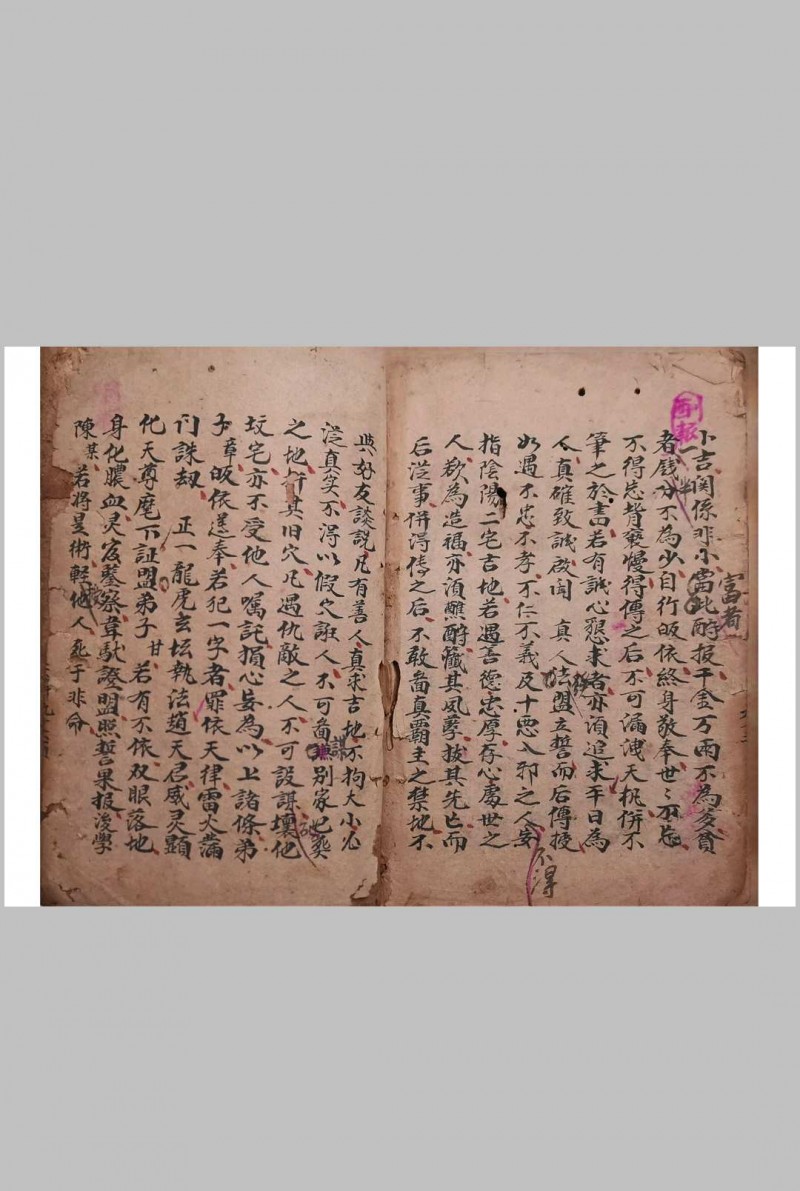 小吉関係非小當此酧报千金万両不為多貧
富者
者錢分不為少自行皈依終身敬奉世〻不忘
不得忘背褻慢得傳之后不可漏洩天机併不
筆之於書若有誠心懇求者亦須追求平日為
人真確致誠啟闻 真人法盟立誓而后傳授
如遇不忠不孝不仁不義及十悪入邪之人妄
不得
指陰陽二宅吉地若遇善德忠厚存心處世之
人欲為造福亦須醮酧懺其风孽拔其先亡而
后従事併得傳之后不敢啚真覇主之禁地不
與好友談説凡有善人真求吉地不拘大小必
従真実不得以假穴誑人不可啚謀别家已葬
之地奸其旧穴凡遇仇敵之人不可設謀壊他
坟宅亦不受他人嘱託損心妄為以上諸條弟
子章皈依遵奉若犯一字者罪依天律雷火
诛刼 正一龍虎玄坛執法趙天君威灵顕
化天尊麾下証盟弟子甘 若有不依双眼落地
身化膿血灵官鑒察韋馱證盟照誓果报後學
陳某若将是術軽他人死于非命